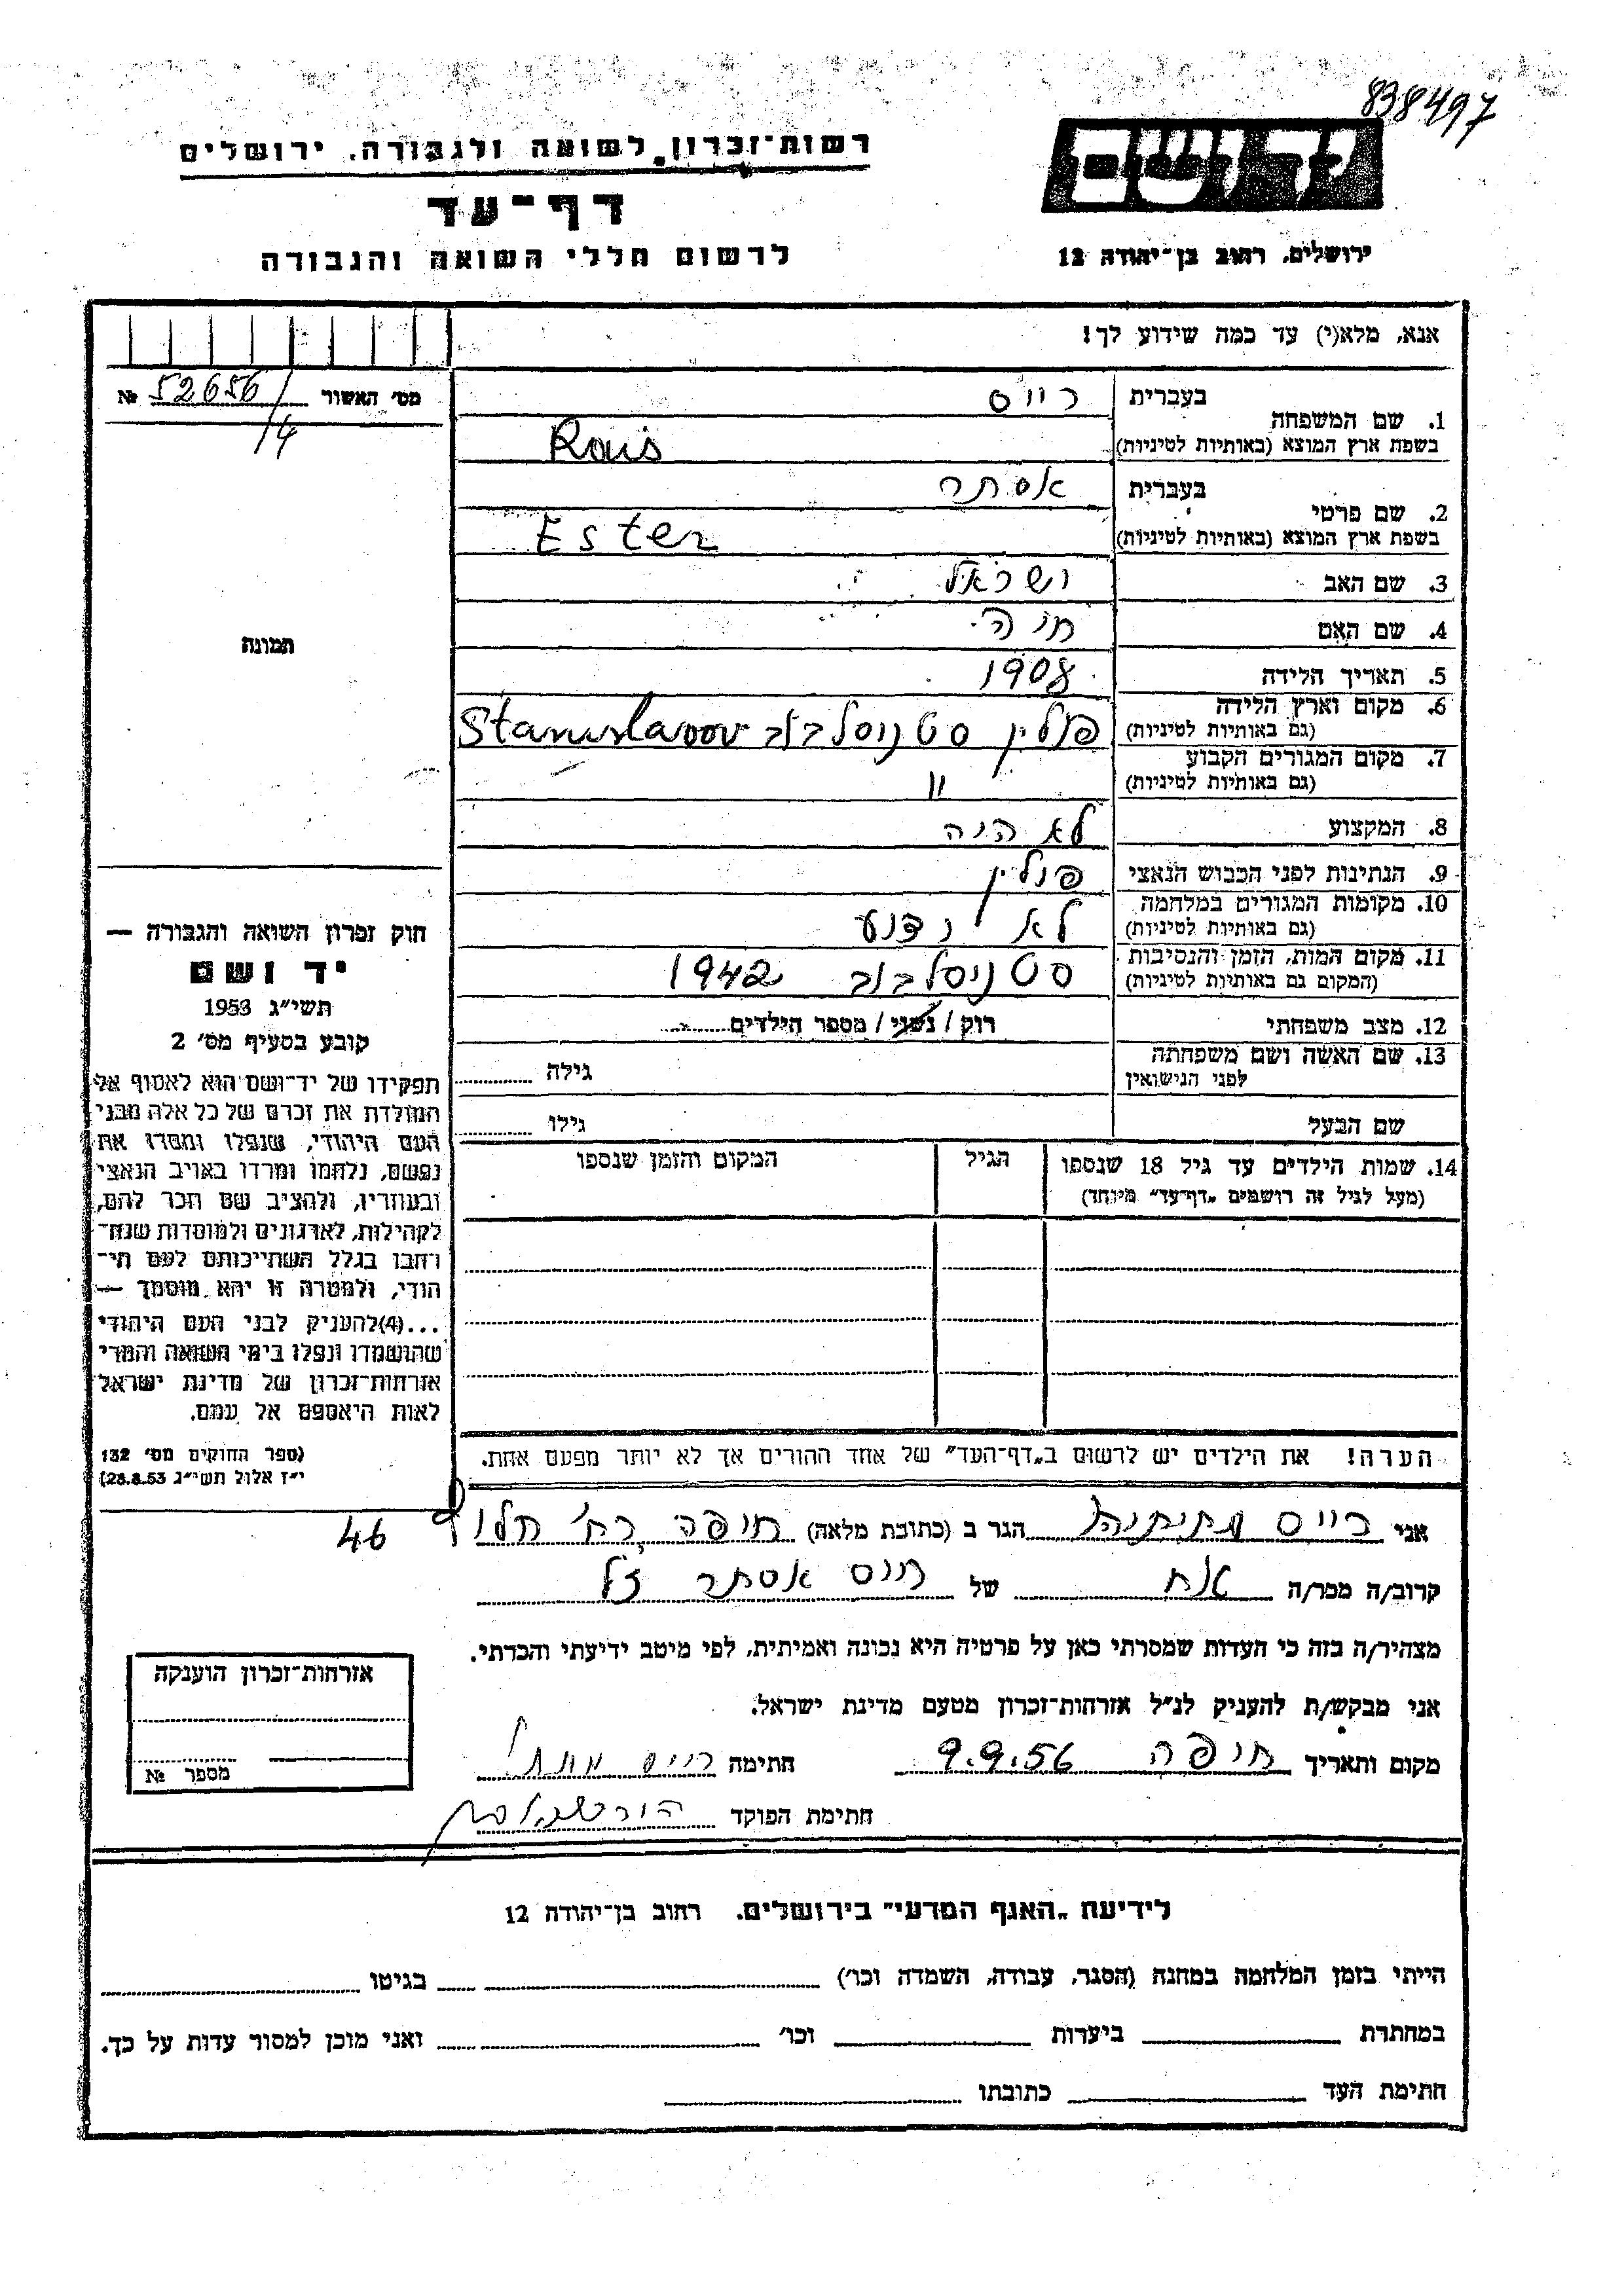 838497
יד ושם
רשות־זכרון לשואה ולגבורה, ירושלים
דף־עד
לרשום חללי השואה והגבורה
ירושלים, רחוב בן־יהודה 12
אנא, מלא(י) עד כמה שידוע לך!
מס' האשור 52656/14 №
תמונה
1. שם המשפחה
בעברית רייס
בשפת ארץ המוצא (באותיות לטיניות) Rais
2. שם פרטי
בעברית אסתר
בשפת ארץ המוצא (באותיות לטיניות) Ester
3. שם האב ישראל
4. שם האם חוה
5. תאריך הלידה 1908
6. מקום וארץ הלידה פולין סטניסלבוב Stanislavov
(גם באותיות לטיניות)
7. מקום המגורים הקבוע "
(גם באותיות לטיניות)
8. המקצוע לא היה
9. הנתינות לפני הכבוש הנאצי פולין
10. מקומות המגורים במלחמה לא ידוע
(גם באותיות לטיניות)
11. מקום המות, הזמן והנסיבות סטניסלבוב 1942
(המקום גם באותיות לטיניות)
12. מצב משפחתי רוק / נשוי / מספר הילדים
13. שם האשה ושם משפחתה גילה
לפני הנישואין
שם הבעל גילו
14. שמות הילדים עד גיל 18 שנספו הגיל המקום והזמן שנספו
(מעל לגיל זה רושמים „דף־עד" מיוחד)
הערה! את הילדים יש לרשום ב„דף־העד" של אחד ההורים אך לא יותר מפעם אחת.
חוק זכרון השואה והגבורה —
יד ושם
תשי"ג 1953
קובע בסעיף מס' 2
תפקידו של יד־ושם הוא לאסוף אל
המולדת את זכרם של כל אלה מבני
העם היהודי, שנפלו ומסרו את
נפשם, נלחמו ומרדו באויב הנאצי
ובעוזריו, ולהציב שם וזכר להם,
לקהילות, לארגונים ולמוסדות שנח־
רחבו בגלל השתייכותם לעם הי־
הודי, ולמטרה זו יהא מוסמך —
...(4)להעניק לבני העם היהודי
שהושמדו ונפלו בימי השואה והמרי
אזרחות־זכרון של מדינת ישראל
לאות היאספם אל עמם.
(ספר החוקים מס' 132
י"ז אלול תשי"ג 28.8.53)
אני רייס הגר ב (כתובת מלאה) חיפה רח' חלוץ 46
קרוב/ה מכר/ה אח של רייס אסתר ז"ל
מצהיר/ה בזה כי העדות שמסרתי כאן על פרטיה היא נכונה ואמיתית, לפי מיטב ידיעתי והכרתי.
אני מבקש/ת להעניק לנ"ל אזרחות־זכרון מטעם מדינת ישראל.
מקום ותאריך חיפה 9.9.56 חתימה רייס
חתימת הפוקד
אזרחות־זכרון הוענקה
מספר №
לידיעת „האגף המדעי" בירושלים, רחוב בן־יהודה 12
הייתי בזמן המלחמה במחנה (הסגר, עבודה, השמדה וכו') בגיטו
במחתרת ביערות וכו' ואני מוכן למסור עדות על כך.
חתימת העד כתובתו